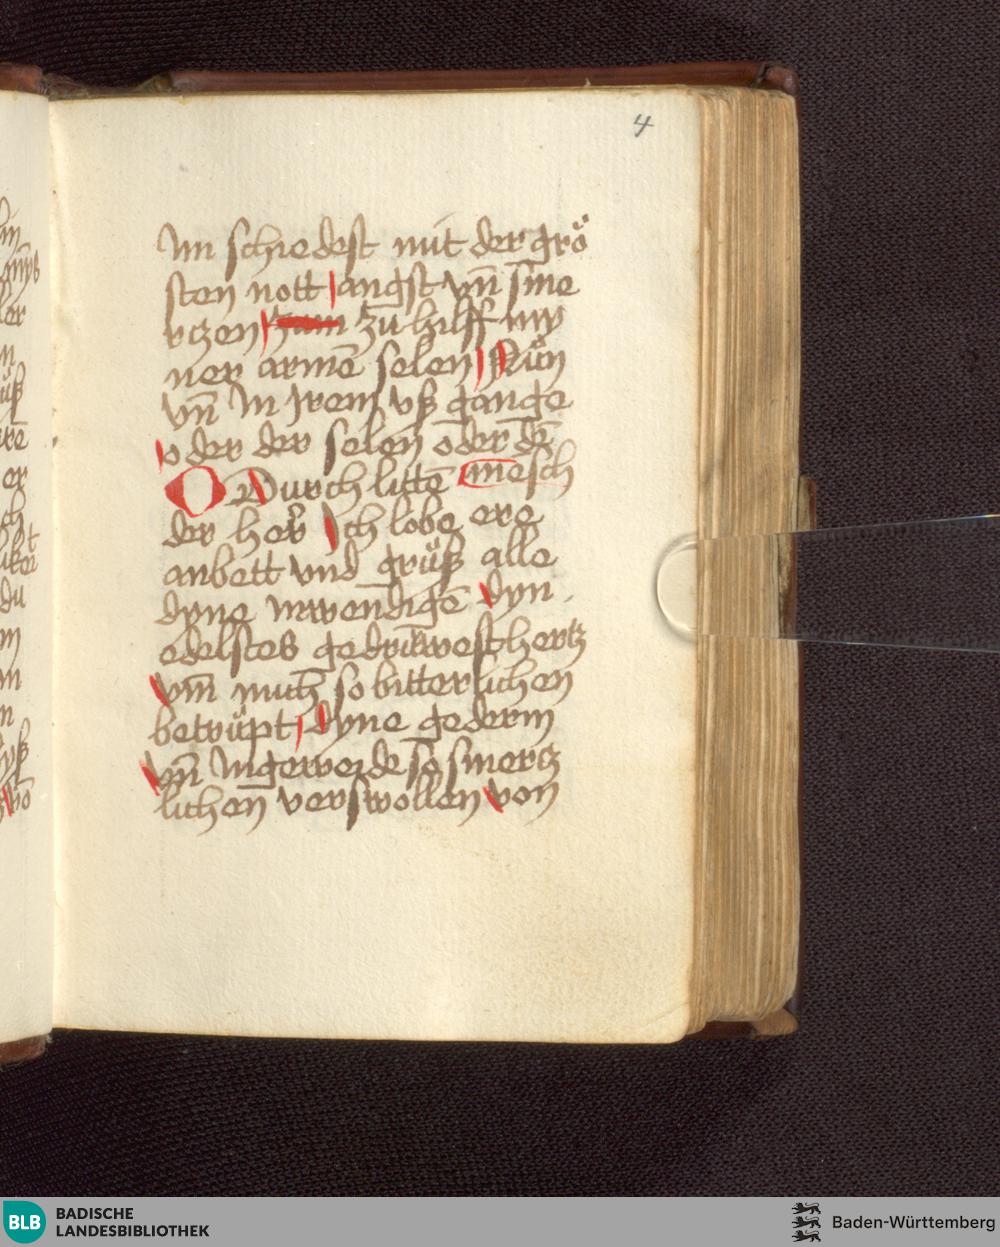 4
Im schiedest mit der grö
sten nott angst vn̄ sme
rczen zu hilff my
ner armē selen Nün
vn̄ In Irem vß gange
o der der selen oder dē
mēsch
O Durch littē
der her Ich lobe ere
anbett vnd grüß alle
dyne Inwendigē dyn
edelstes gedrüwest hertz
vm̄ mich so bitterlichen
betrüpt dyne gederm
vn̄ Ingeweide so smertz
lichen verswollen von
BLB
BADISCHE
LANDESBIBLIOTHEK
Baden-Württemberg